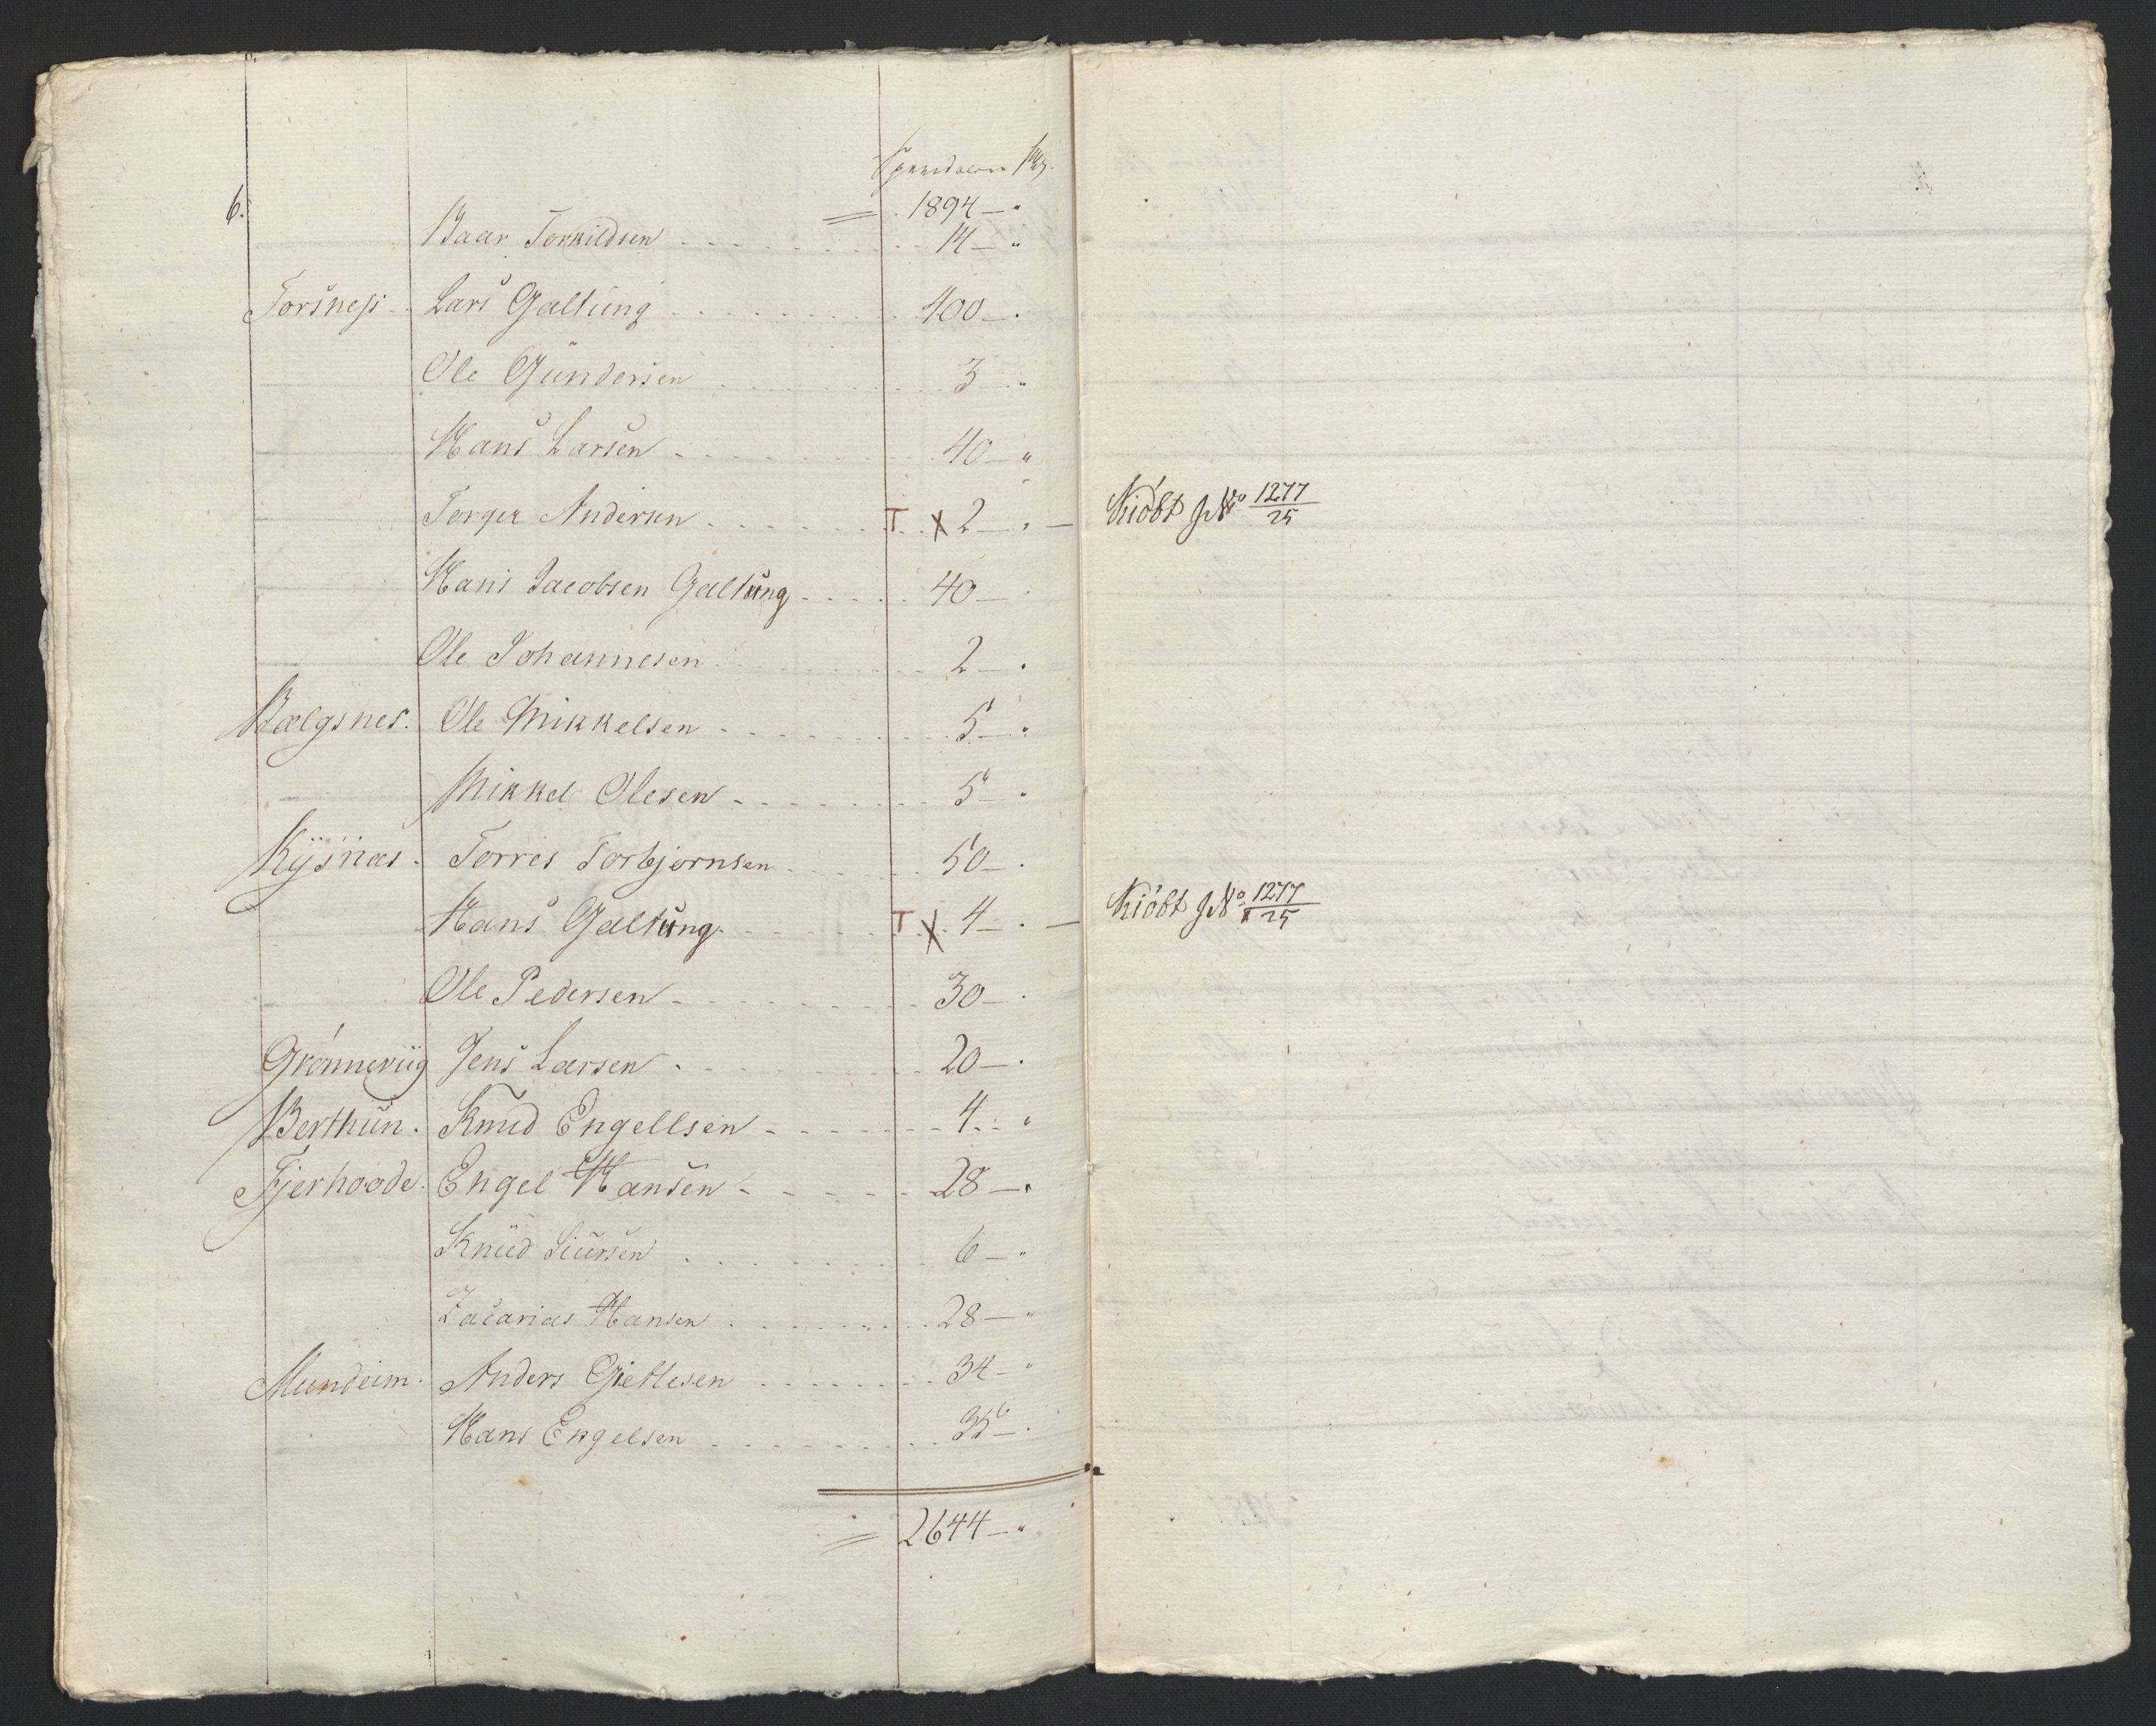 Speciedaler ß
6.
= 1894 — "
Baar Torkildsen - - - 14 — "
Torsness - Lars Galtung - - - 400 — .
Ole Gundersen - - - 3 — "
Hans Larsen - - - 40 — "
Torger Andersen - - - T x 2 — . — Kiöbt J No 1277/25
Hans Jacobsen Galtung - - - 40 — .
Ole Johannesen - - - 2 — .
Bælgsnes. Ole Mikkelsen - - - 5 — "
Mikkel Olesen - - - 5 — "
Kysnæs. Torres Torbjørnsen - - - 50 — .
Hans Galtung - - - T x 4 — . — Kiöbt J No 1277/25
Ole Pedersen - - - 30 — .
Grönneviig Jens Larsen - - - 20 — .
Berthun. Knud Engellsen - - - 4 - "
Fjerhoode. Engel Hansen - - - 28 — "
Knud Siursen - - - 6 — "
Zacarias Hansen - - - 28 — "
Mundeim. Anders Gietlesen - - - 34 - "
Hans Engelsen - - - 35 — .
= 2644 — "